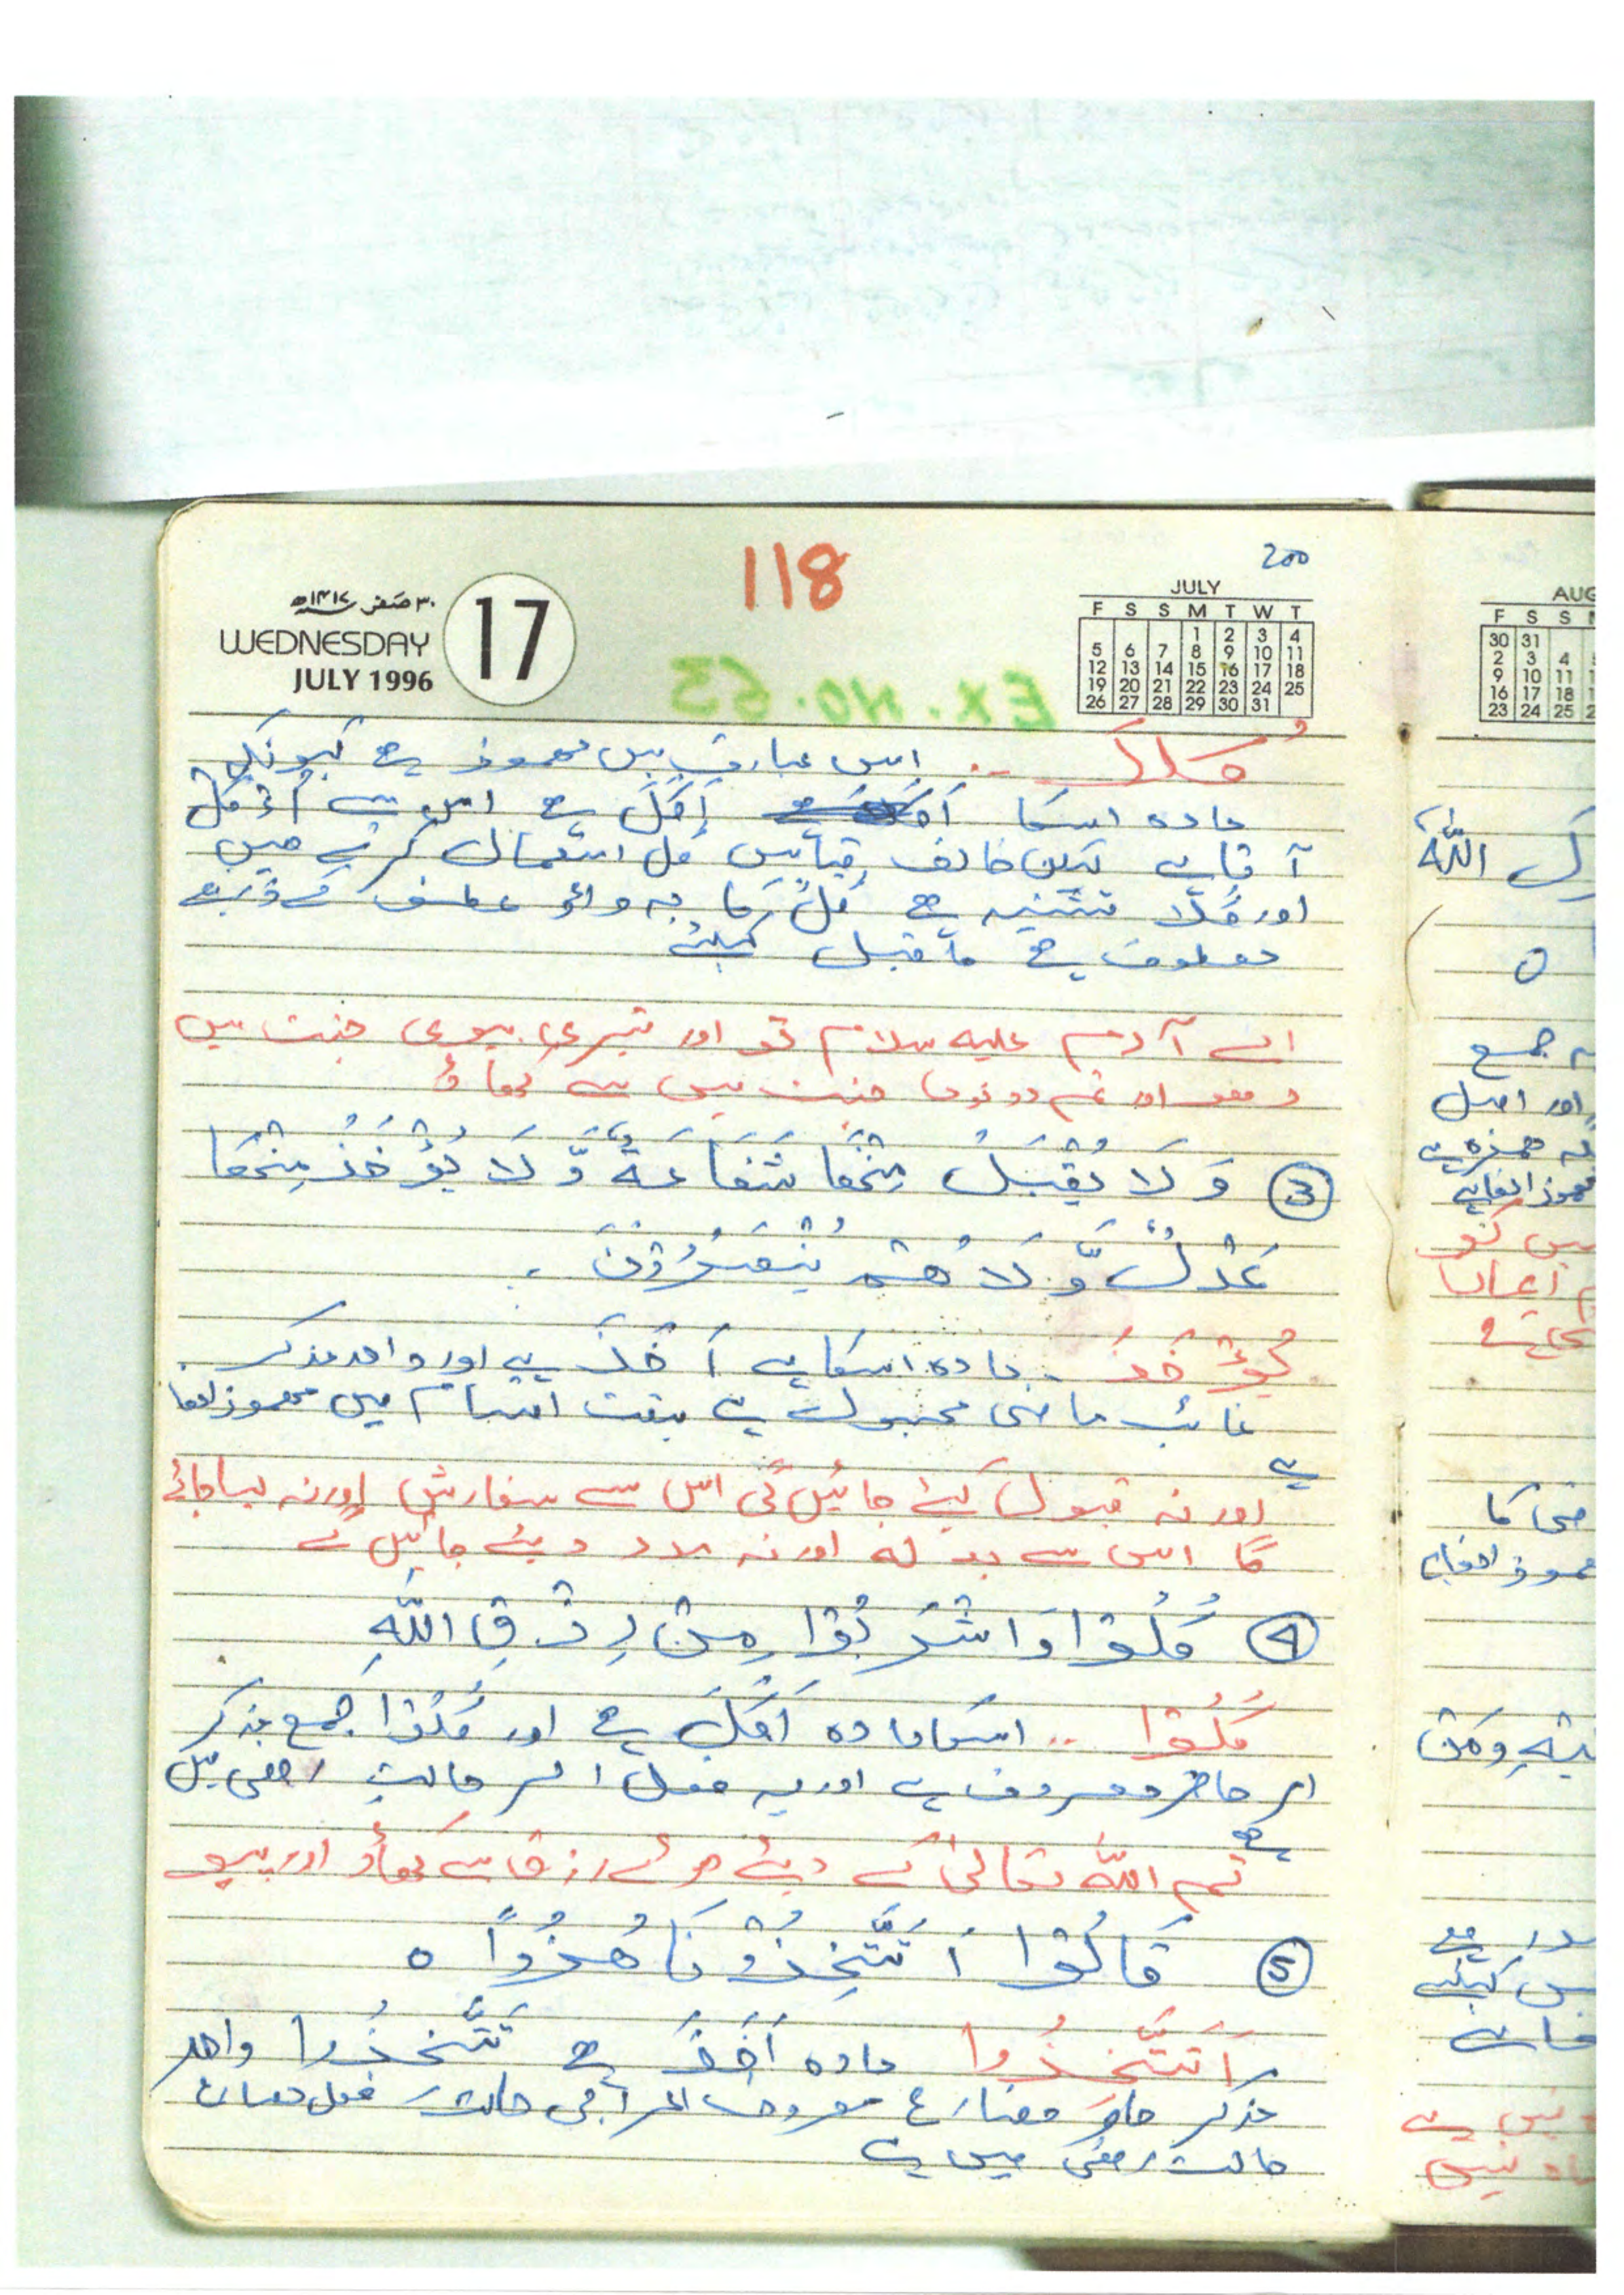 118
200
٣٠ صفر ١٤١٧ھ
WEDNESDAY
JULY 1996
17
JULY
F S S M T W T
1 2 3 4
5 6 7 8 9 10 11
12 13 14 15 16 17 18
19 20 21 22 23 24 25
26 27 28 29 30 31
EX. NO. 53
كُلاَ .. اس عبارت میں مھموز ہے کیونکہ
مادہ اسکا اَکَلَ ہے اس سے اُؤکل
آتا ہے لیکن خالف قیاس کل استعمال کرتے ھیں
اور کُلا تثنیہ ہے کُلْ کا یہ واؤ عاطف کے ذریعے
معطوف ہے ما قبل کیلئے
اے آدم علیہ سلام تو اور تیری بیوی جنت میں
رھو اور تم دونوں جنت میں سے کھاؤ
③ وَ لَا یُقْبَلُ مِنْھَا شَفَاعَةٌ وَّ لَا یُؤْخَذُ مِنْھَا
عَدْلٌ وَّ لَا ھُمْ یُنْصَرُوْنَ .
یُؤْخَذُ ۔ مادہ اسکا ہے اَخَذَ ہے اور واحد مذکر
غائب ماضی مجہول ہے ہفت اقسام میں مھموز الفا
ہے
اور نہ قبول کیئے جائیں گی اس سے سفارش اور نہ لیا جائے
گا اس سے بدلہ اور نہ مدد دیئے جائیں گے
④ کُلُوْا وَاشْرَبُوْا مِنْ رِزْقِ اللّٰهِ
کُلُوْا .. اسکا مادہ اَکَلَ ہے اور کُلُوْا جمع مذکر
امر حاضر معروف ہے اور یہ فعل امر حالت رفعی میں
ہے
تم اللّٰہ تعالیٰ کے دیئے ھوئے رزق سے کھاؤ اور پیو
⑤ قَالُوْا اَتَتَّخِذُوْنَا ھُزُوًا ہ
اَتَتَّخِذُوا مادہ اَخَذَ ہے تَتَّخِذُوا واحد
مذکر حاضر مضارع معروف
حالت رفعی میں ہے
AUG
F S S
30 31
2 3 4
9 10 11
16 17 18
23 24 25
اللّٰه
جمع
اور اصل
ھمزہ ہے